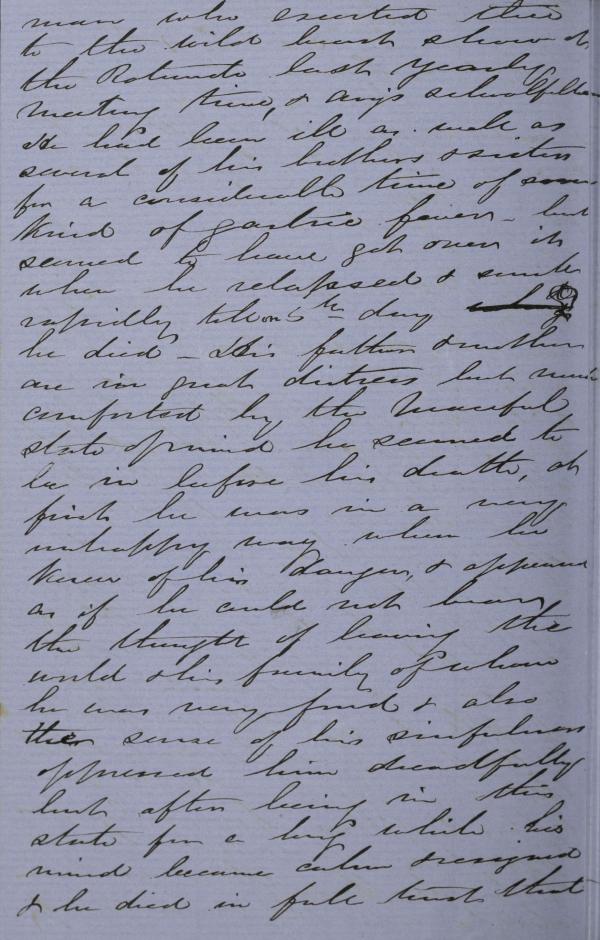 man who escorted thee
to the wild beast show at
the Rotundo last Yearly
meeting time, & Avy's schoolfellow
He had been ill as well as
several of his brothers & sisters
for a considerable time of some
kind of gastric fever - but
seemed to have got over it
when he relapsed & sunk
rapidly till on 5th day
he died - His father & mother
are in great distress but much
comforted by the peaceful
state of mind he seemed to
be in before his death, at
first he was in a very
unhappy way when he
knew of his danger, & appeared
as if he could not bear
the thought of leaving the
world & his family of whom
he was very fond & also
the sense of his sinfulness
oppressed him dreadfully
but after being in this
state for a long while his
mind became calm & resigned
& he died in full trust that